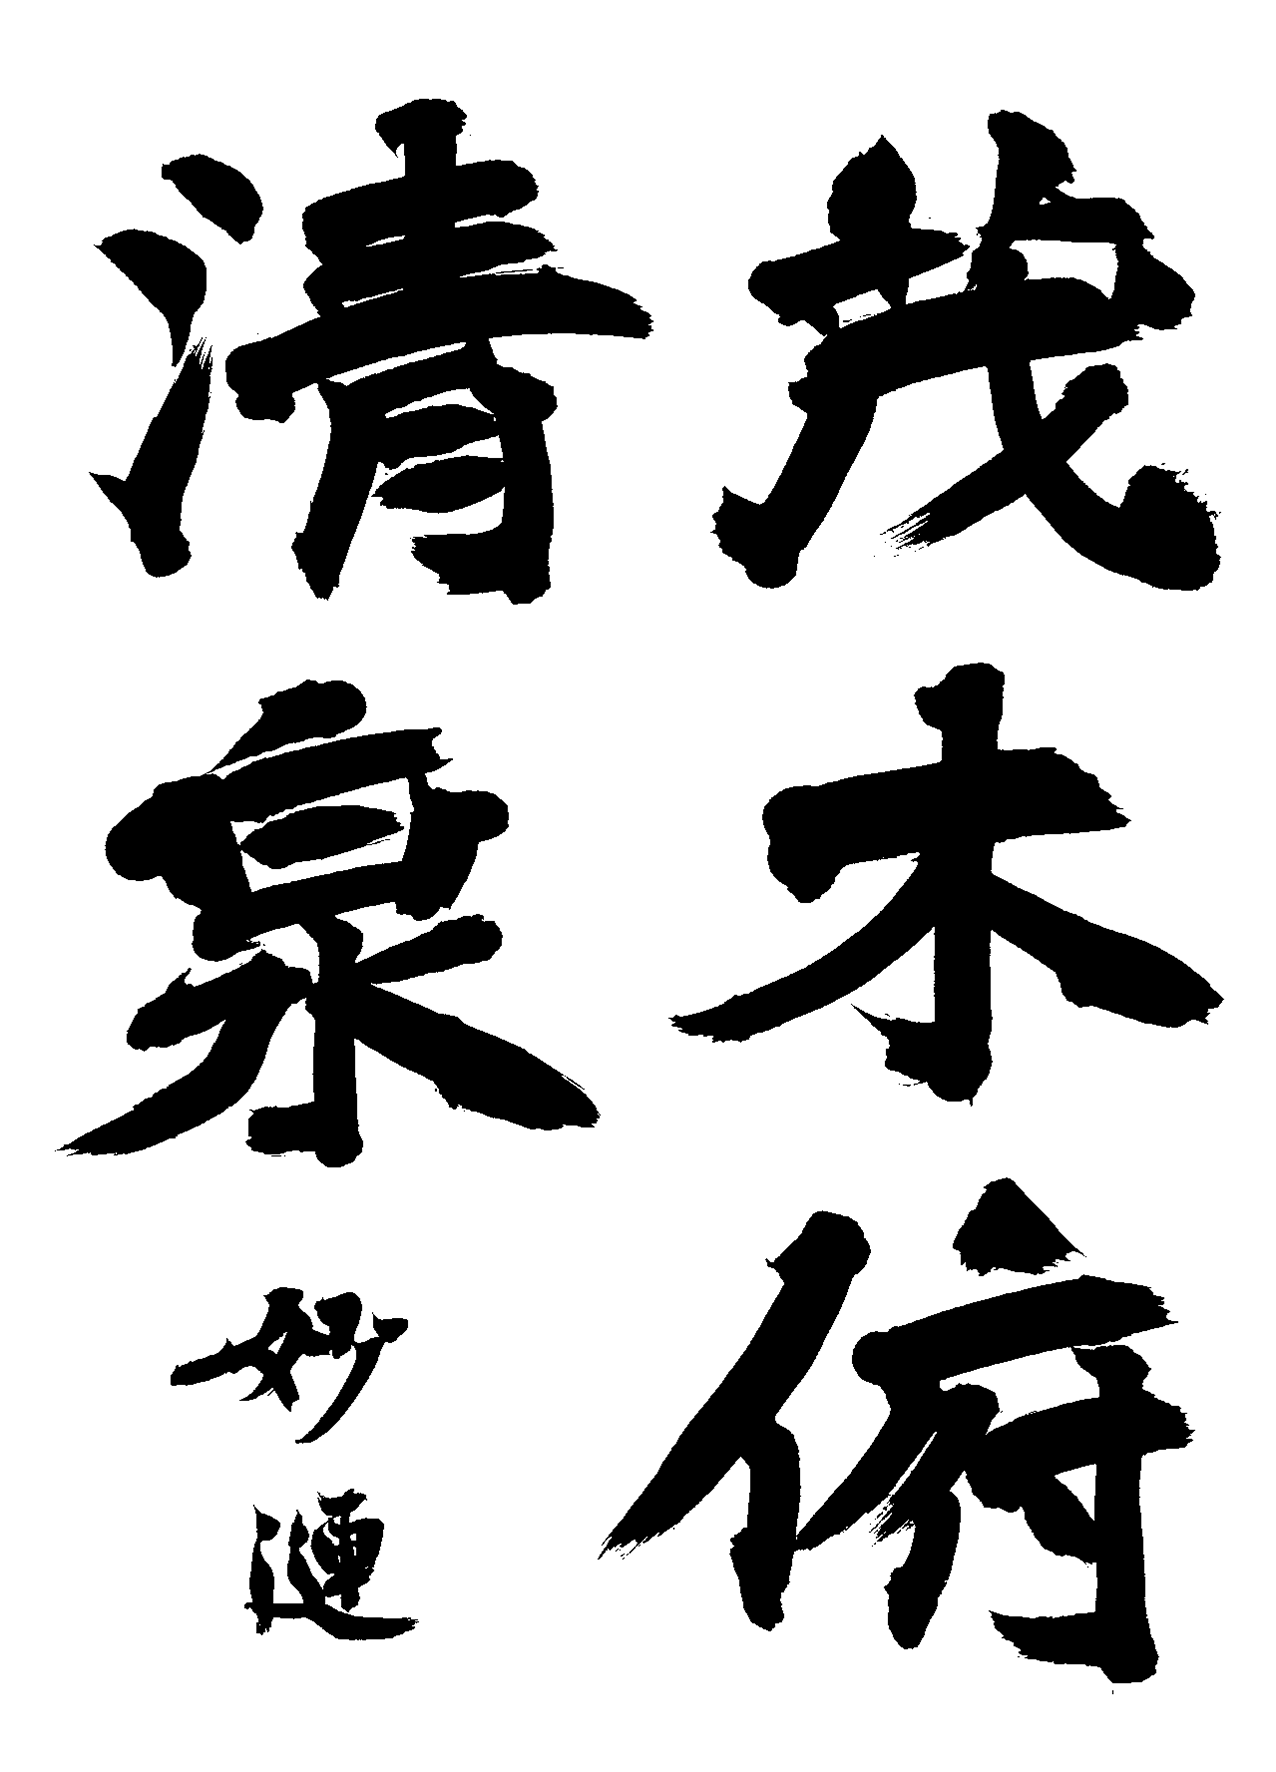 茂木俯
清泉
妙漣